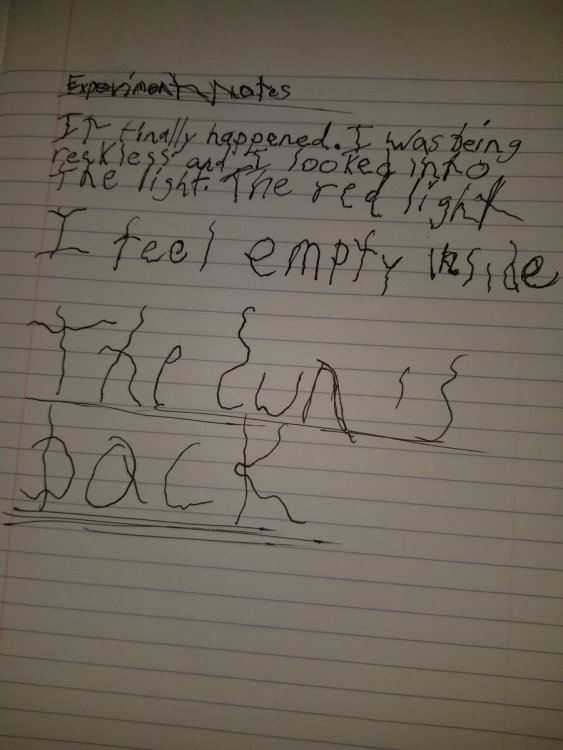 Experiment Notes
It finally happened. I was being
reckless and I looked into
The light. The red light
I feel empty inside
The Sun is
DACK